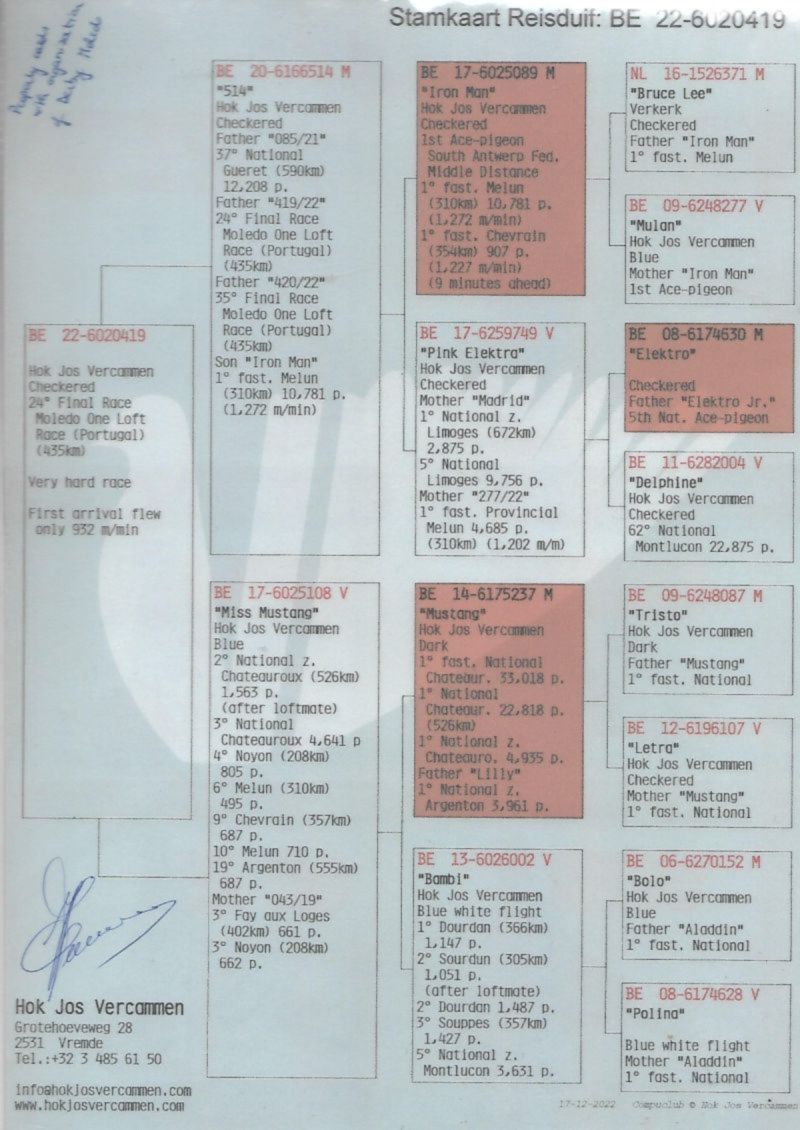 Stamkaart Reisduif: BE 22-6020419
with organisation
BE 22-6020419
Hok Jos Vercammen
Checkered
24° Final Race
Moledo One Loft
Race (Portugal)
(435km)
Very hard race
First arrival flew
only 932 m/min
BE 20-6166514 M
"514"
Hok Jos Vercammen
Checkered
Father "085/21"
37° National
Gueret (590km)
12,208 p.
Father "419/22"
24° Final Race
Moledo One Loft
Race (Portugal)
(435km)
Father "420/22"
35° Final Race
Moledo One Loft
Race (Portugal)
(435km)
Son "Iron Man"
1° fast. Melun
(310km) 10,781 p.
(1,272 m/min)
BE 17-6025108 V
"Miss Mustang"
Hok Jos Vercammen
Blue
2° National z.
Chateauroux (526km)
1,563 p.
(after loftmate)
3° National
Chateauroux 4,641 p
4° Noyon (208km)
805 p.
6° Melun (310km)
495 p.
9° Chevrain (357km)
687 p.
10° Melun 710 p.
19° Argenton (555km)
687 p.
Mother "043/19"
3° Fay aux Loges
(402km) 661 p.
3° Noyon (208km)
662 p.
BE 17-6025089 M
"Iron Man"
Hok Jos Vercammen
Checkered
1st Ace-pigeon
South Antwerp Fed.
Middle Distance
1° fast. Melun
(310km) 10,781 p.
(1,272 m/min)
1° fast. Chevrain
(354km) 907 p.
(1,227 m/min)
(9 minutes ahead)
BE 17-6259749 V
"Pink Elektra"
Hok Jos Vercammen
Checkered
Mother "Madrid"
1° National z.
Limoges (672km)
2,875 p.
5° National
Limoges 9,756 p.
Mother "277/22"
1° fast. Provincial
Melun 4,685 p.
(310km) (1,202 m/m)
BE 14-6175237 M
"Mustang"
Hok Jos Vercammen
Dark
1° fast. National
Chateaur. 33,018 p.
1° National
Chateaur. 22,818 p.
(526km)
1° National z.
Chateauro. 4,935 p.
Father "Lilly"
1° National z.
Argenton 3,961 p.
BE 13-6026002 V
"Bambi"
Hok Jos Vercammen
Blue white flight
1° Dourdan (366km)
1,147 p.
2° Sourdun (305km)
1,051 p.
(after loftmate)
2° Dourdan 1,487 p.
3° Souppes (357km)
1,427 p.
5° National z.
Montlucon 3,631 p.
NL 16-1526371 M
"Bruce Lee"
Verkerk
Checkered
Father "Iron Man"
1° fast. Melun
BE 09-6248277 V
"Mulan"
Hok Jos Vercammen
Blue
Mother "Iron Man"
1st Ace-pigeon
BE 08-6174630 M
"Elektro"
Checkered
Father "Elektro Jr."
5th Nat. Ace-pigeon
BE 11-6282004 V
"Delphine"
Hok Jos Vercammen
Checkered
62° National
Montlucon 22,875 p.
BE 09-6248087 M
"Tristo"
Hok Jos Vercammen
Dark
Father "Mustang"
1° fast. National
BE 12-6196107 V
"Letra"
Hok Jos Vercammen
Checkered
Mother "Mustang"
1° fast. National
BE 06-6270152 M
"Bolo"
Hok Jos Vercammen
Blue
Father "Aladdin"
1° fast. National
BE 08-6174628 V
"Polina"
Blue white flight
Mother "Aladdin"
1° fast. National
Hok Jos Vercammen
Grotehoeveweg 28
2531 Vremde
Tel.:+32 3 485 61 50
info@hokjosvercammen.com
www.hokjosvercammen.com
17-12-2022 Compuclub © Hok Jos Vercammen